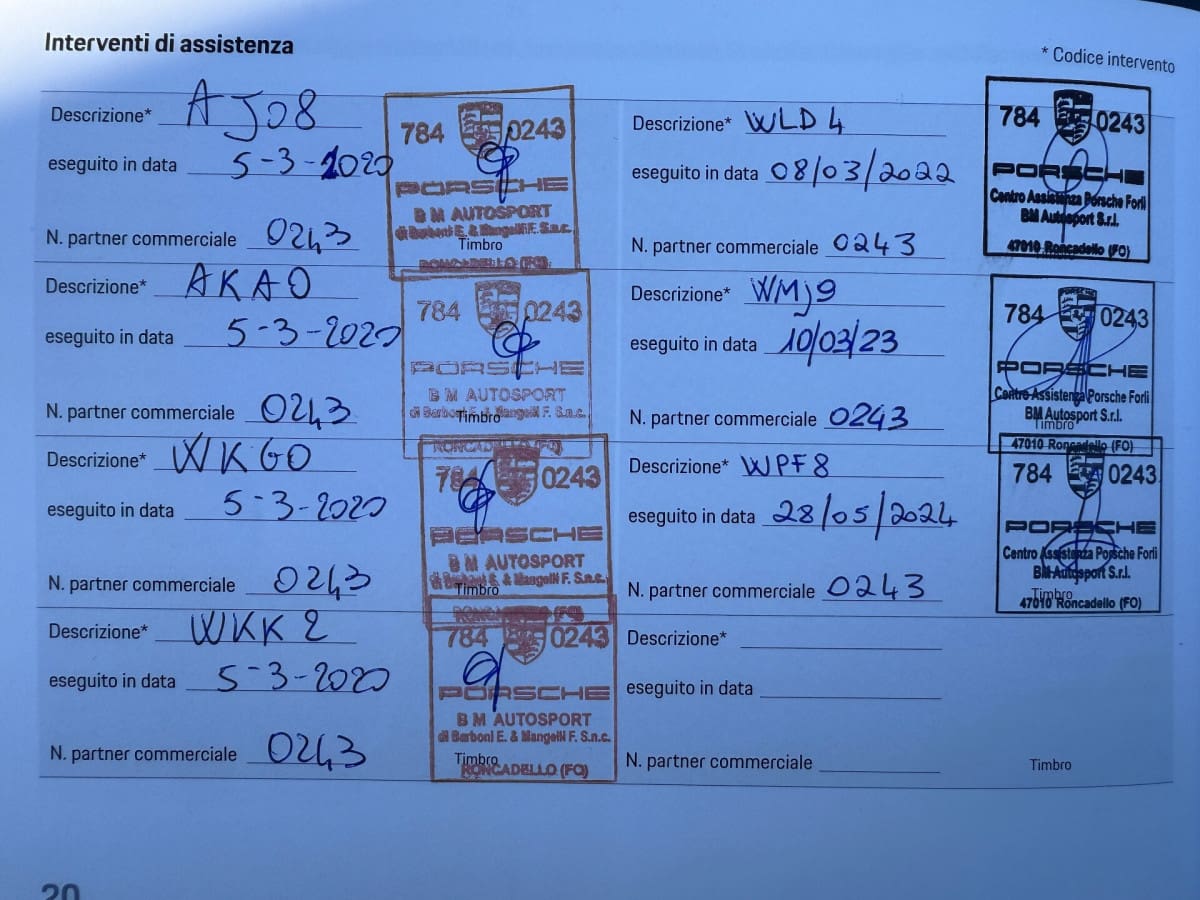 Interventi di assistenza
* Codice intervento
Descrizione* AJ08
eseguito in data 5-3-2020
N. partner commerciale 0243
784 0243
PORSCHE
B M AUTOSPORT
di Barboni E. & Mangelli F. S.n.c.
Timbro
RONCADELLO (FO)
Descrizione* AKA0
eseguito in data 5-3-2020
N. partner commerciale 0243
784 0243
PORSCHE
B M AUTOSPORT
di Barboni E. & Mangelli F. S.n.c.
Timbro
RONCADELLO (FO)
Descrizione* WKG0
eseguito in data 5-3-2020
N. partner commerciale 0243
784 0243
PORSCHE
B M AUTOSPORT
di Barboni E. & Mangelli F. S.n.c.
Timbro
Descrizione* WKK2
eseguito in data 5-3-2020
N. partner commerciale 0243
784 0243
PORSCHE
B M AUTOSPORT
di Barboni E. & Mangelli F. S.n.c.
Timbro
RONCADELLO (FO)
Descrizione* WLD4
eseguito in data 08/03/2022
N. partner commerciale 0243
784 0243
PORSCHE
Centro Assistenza Porsche Forlì
BM Autosport S.r.l.
47010 Roncadello (FO)
Descrizione* WMJ9
eseguito in data 10/03/23
N. partner commerciale 0243
784 0243
PORSCHE
Centro Assistenza Porsche Forlì
BM Autosport S.r.l.
Timbro
47010 Roncadello (FO)
Descrizione* WPF8
eseguito in data 28/05/2024
N. partner commerciale 0243
784 0243
PORSCHE
Centro Assistenza Porsche Forlì
BM Autosport S.r.l.
Timbro
47010 Roncadello (FO)
Descrizione*
eseguito in data
N. partner commerciale
Timbro
20